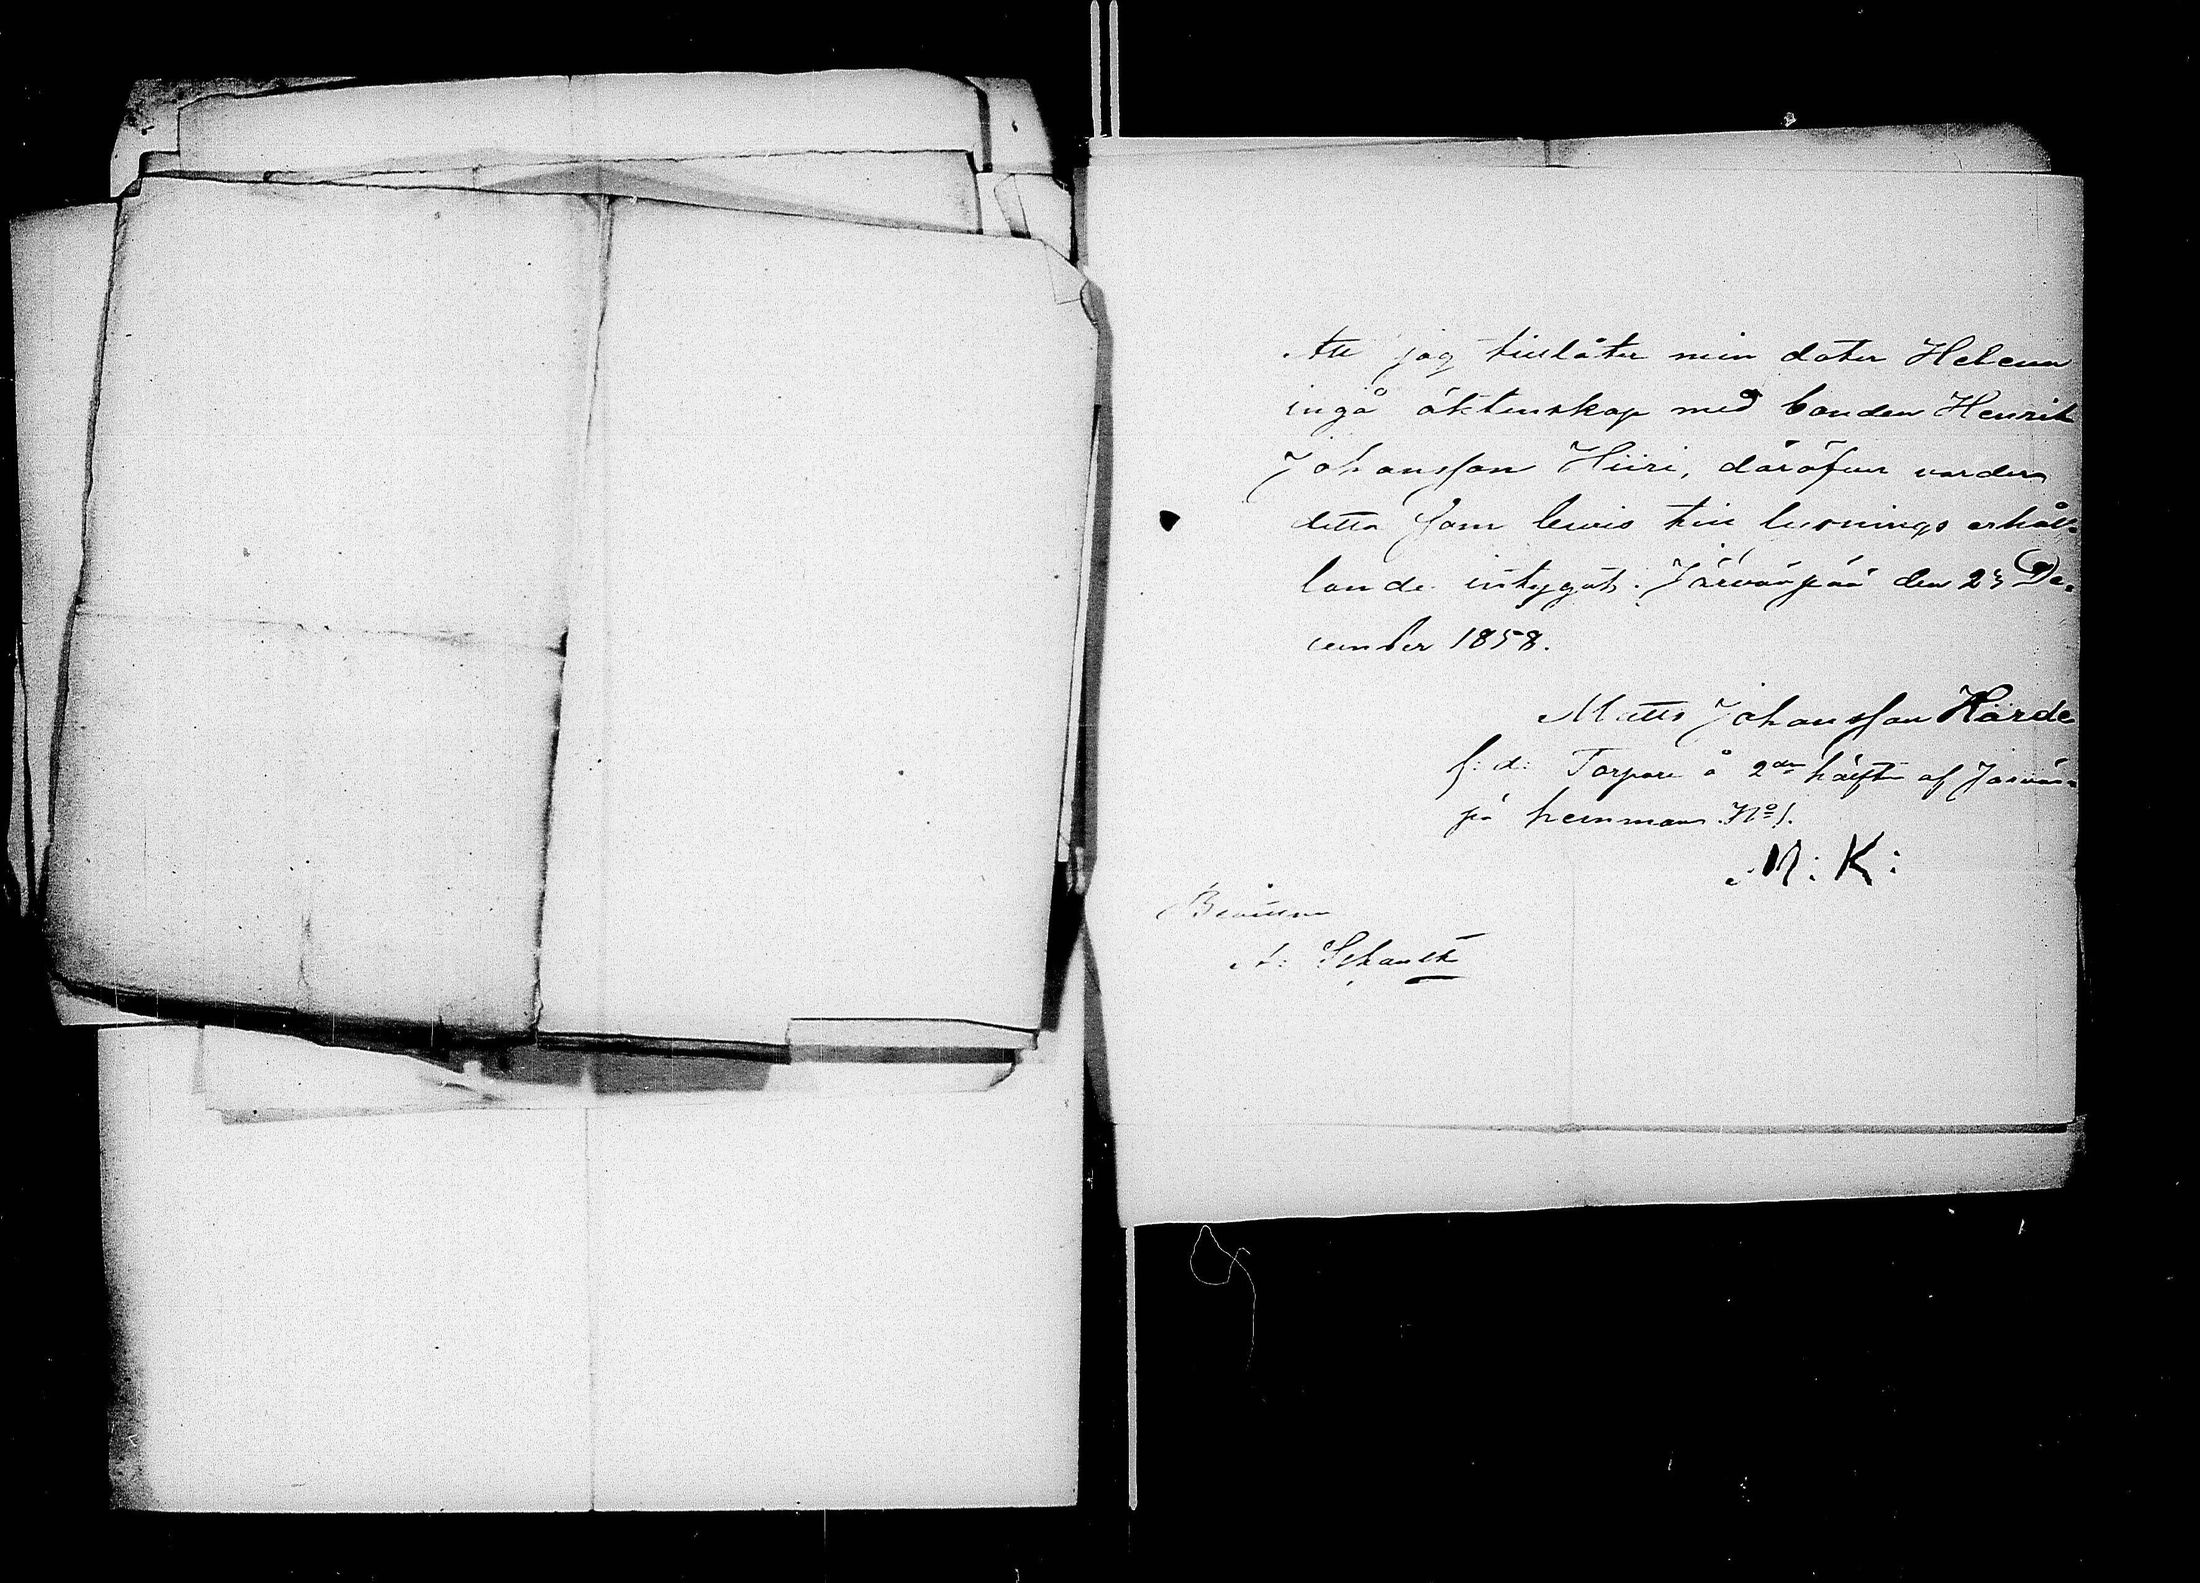 Att jag tillåter min doter Helena
ingå äktenskap med bonden Henrik
Johansson Hiiri, däröfver varder
detta som bevis till lysnings erhål-
lande intygat. Järvänpää den 23 De-
cember 1858.
Matts Johansson Kärde
f: d: Torpare å 2dra hälften af Järvän-
pä hemman No 1.
M: K:
Bevittna
A: Schantz